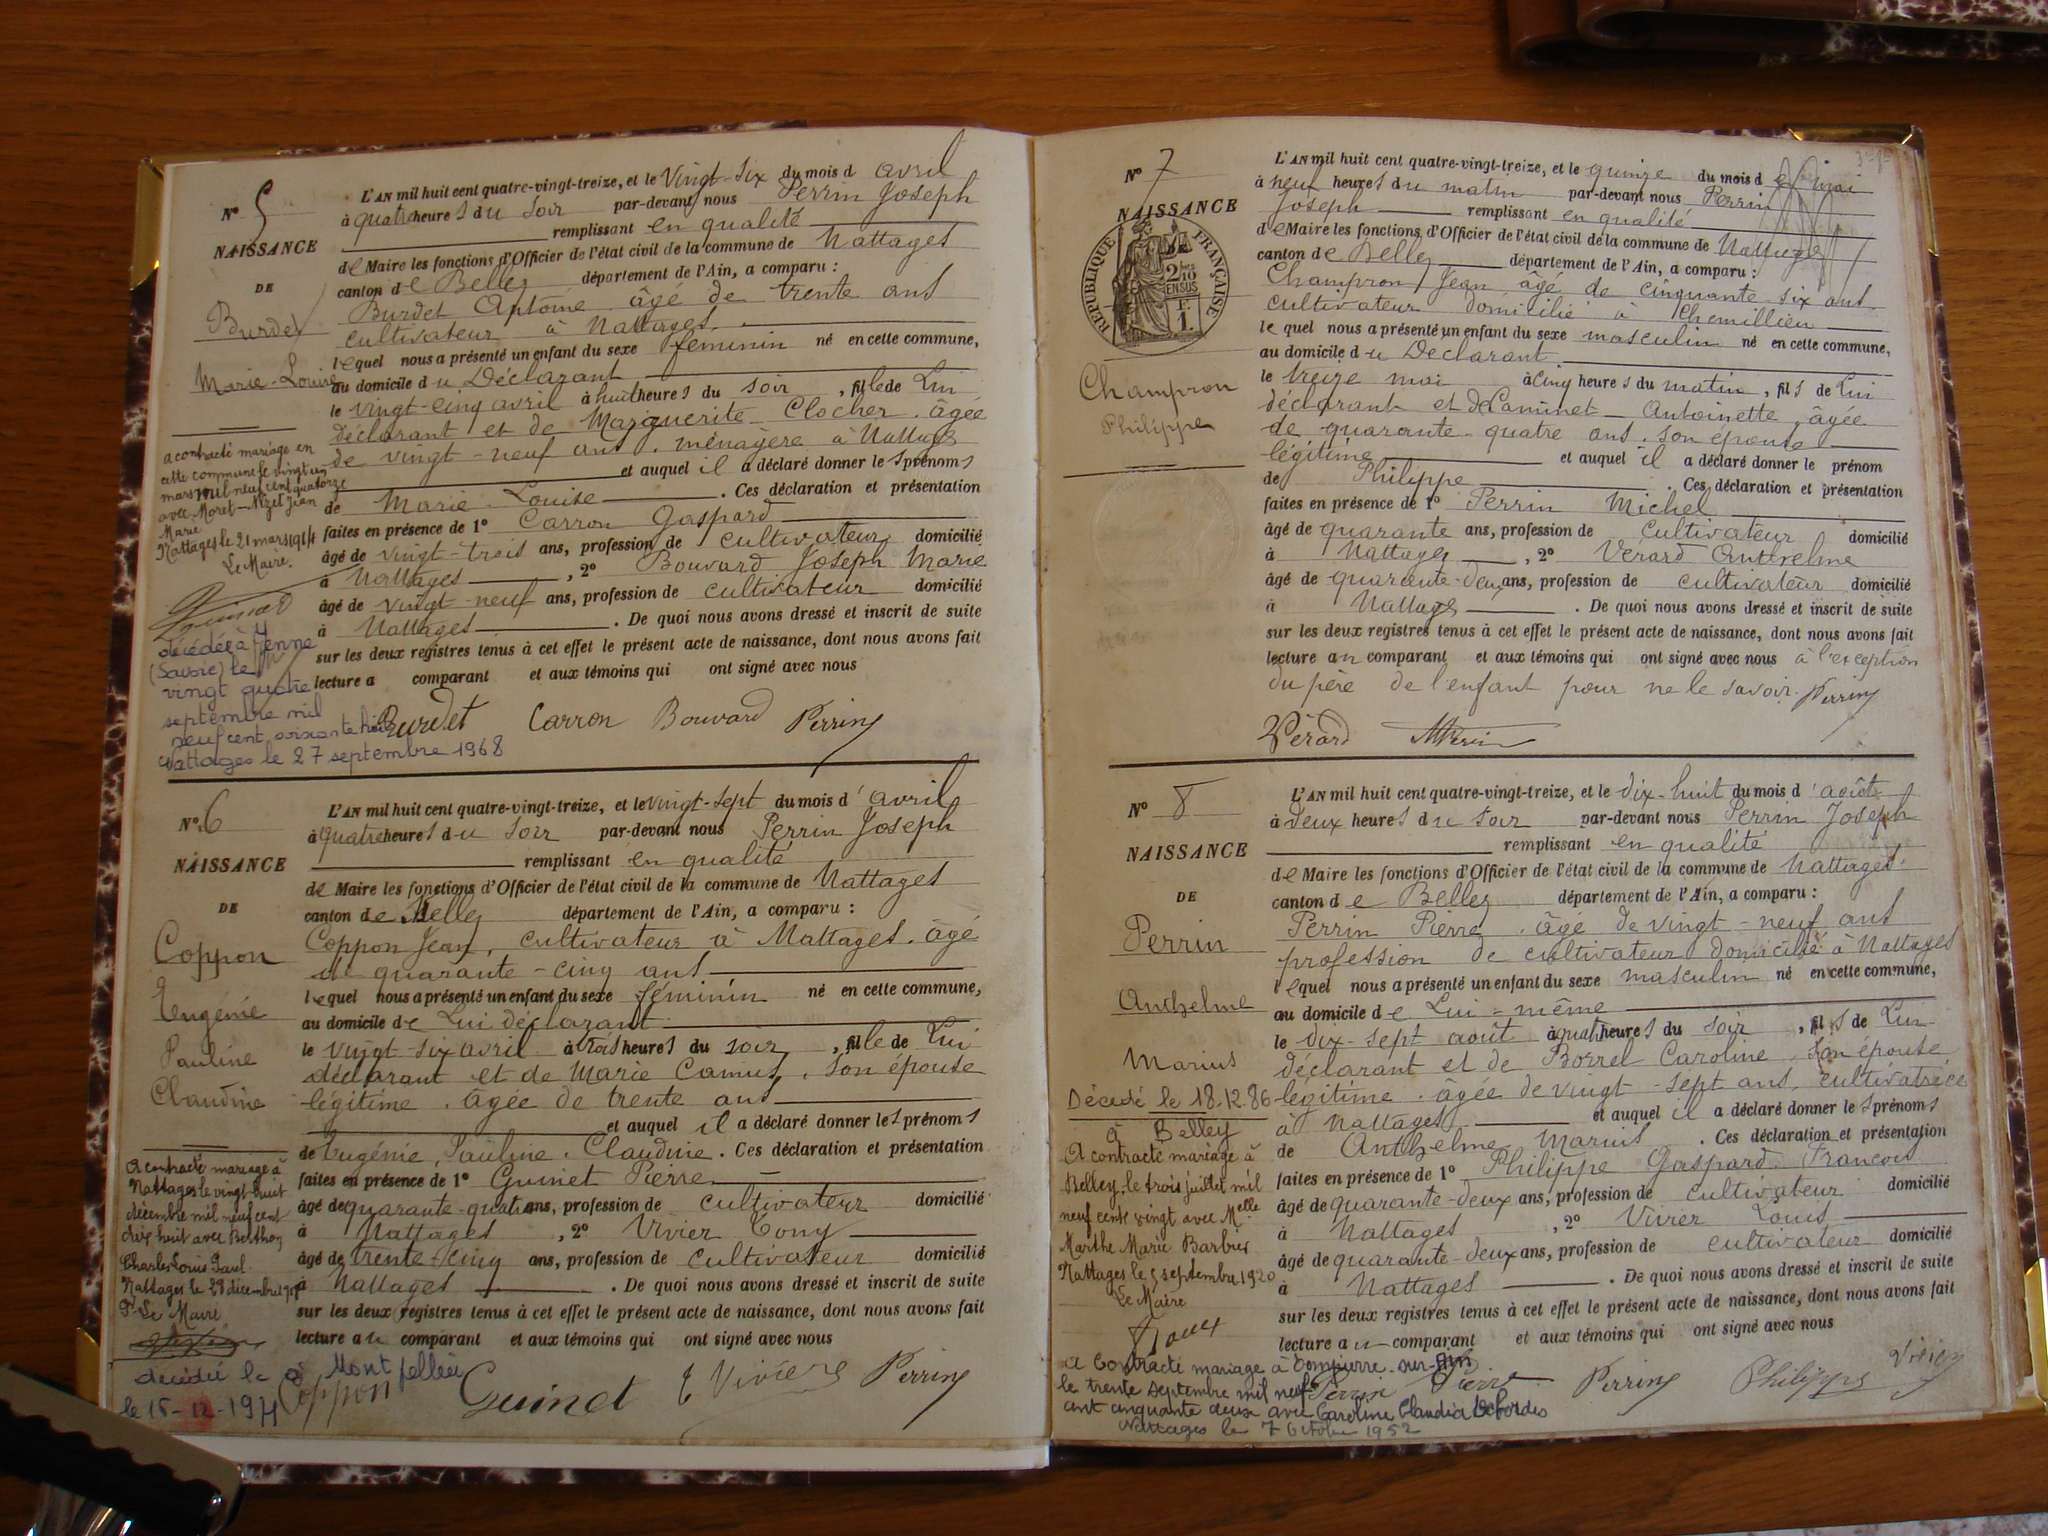 N° 5
NAISSANCE
DE
Burdet
Marie-Louise
a contracté mariage en
cette commune le vingt un
mars mil neuf cent quatorze
avec Moret-Mzel Jean
Marie
Nattages le 21 mars 1914
Le Maire.
décédée à Yenne
(Savoie) le
vingt quatre
septembre mil
neuf cent soixante huit
Nattages le 27 septembre 1968
L'AN mil huit cent quatre-vingt-treize, et le Vingt-six du mois d avril
à quatre heures du soir par-devant nous Perrin Joseph
remplissant en qualité
de Maire les fonctions d'Officier de l'état civil de la commune de Nattages
canton de Belley département de l'Ain, a comparu :
Burdet Antoine âgé de trente ans
cultivateur à Nattages.
lequel nous a présenté un enfant du sexe féminin né en cette commune,
au domicile du Déclarant
le vingt-cinq avril à huit heures du soir, fille de Lui
déclarant et de Marguerite Clocher. âgée
de vingt-neuf ans. ménagère à Nattages
et auquel il a déclaré donner les prénoms
de Marie-Louise. Ces déclaration et présentation
faites en présence de 1° Carron Gaspard
âgé de vingt-trois ans, profession de cultivateur domicilié
à Nattages, 2° Bouvard Joseph Marie
âgé de vingt-neuf ans, profession de cultivateur domicilié
à Nattages. De quoi nous avons dressé et inscrit de suite
sur les deux registres tenus à cet effet le présent acte de naissance, dont nous avons fait
lecture a comparant et aux témoins qui ont signé avec nous
Burdet Carron Bouvard Perrin
N° 6
NAISSANCE
DE
Coppon
Eugénie
Pauline
Claudine
A contracté mariage à
Nattages le vingt-huit
décembre mil neuf cent
dix huit avec Berthon
Charles Louis Paul.
Nattages le 28 décembre
Pr Le Maire
décédée le à Montpellier
le 15-12-1971
L'AN mil huit cent quatre-vingt-treize, et le vingt-sept du mois d'avril
à quatre heures du soir par-devant nous Perrin Joseph
remplissant en qualité
de Maire les fonctions d'Officier de l'état civil de la commune de Nattages
canton de Belley département de l'Ain, a comparu :
Coppon Jean, cultivateur à Nattages. âgé
de quarante-cinq ans
lequel nous a présenté un enfant du sexe féminin né en cette commune,
au domicile de Lui déclarant
le vingt-six avril à trois heures du soir, fille de Lui
déclarant et de Marie Camus, son épouse
légitime. âgée de trente ans
et auquel il a déclaré donner les prénoms
de Eugénie, Pauline. Claudine. Ces déclaration et présentation
faites en présence de 1° Guinet Pierre
âgé de quarante-quatre ans, profession de cultivateur domicilié
à Nattages, 2° Vivier Tony
âgé de trente-cinq ans, profession de cultivateur domicilié
à Nattages. De quoi nous avons dressé et inscrit de suite
sur les deux registres tenus à cet effet le présent acte de naissance, dont nous avons fait
lecture au comparant et aux témoins qui ont signé avec nous
Coppon Guinet T Vivier Perrin
N° 7
NAISSANCE
RÉPUBLIQUE FRANÇAISE
2/10 EN SUS
1 F.
Champron
Philippe
L'AN mil huit cent quatre-vingt-treize, et le quinze du mois de Mai
à neuf heures du matin par-devant nous Perrin
Joseph remplissant en qualité
de Maire les fonctions d'Officier de l'état civil de la commune de Nattages
canton de Belley département de l'Ain, a comparu :
Champron Jean âgé de cinquante-six ans
cultivateur domicilié à Chemillieu
lequel nous a présenté un enfant du sexe masculin né en cette commune,
au domicile du Déclarant
le treize mai à cinq heures du matin, fils de Lui
déclarant et de Caminet Antoinette, âgée
de quarante-quatre ans. son épouse
légitime et auquel il a déclaré donner le prénom
de Philippe. Ces déclaration et présentation
faites en présence de 1° Perrin Michel
âgé de quarante ans, profession de cultivateur domicilié
à Nattages, 2° Vérard Anthelme
âgé de quarante-deux ans, profession de cultivateur domicilié
à Nattages. De quoi nous avons dressé et inscrit de suite
sur les deux registres tenus à cet effet le présent acte de naissance, dont nous avons fait
lecture au comparant et aux témoins qui ont signé avec nous à l'exception
du père de l'enfant pour ne le savoir. Perrin
Vérard M Perrin
N° 8
NAISSANCE
DE
Perrin
Anthelme
Marius
Décédé le 18.12.86
à Belley
A contracté mariage à
Belley, le trois juillet mil
neuf cent vingt avec Melle
Marthe Marie Barbier
Nattages le 5 septembre 1920
Le Maire
A contracté mariage à Dompierre-sur-Ain
le trente septembre mil neuf
cent cinquante deux avec Caroline Claudia Debordes
Nattages le 7 Octobre 1952
L'AN mil huit cent quatre-vingt-treize, et le dix-huit du mois d'août
à deux heures du soir par-devant nous Perrin Joseph
remplissant en qualité
de Maire les fonctions d'Officier de l'état civil de la commune de Nattages
canton de Belley département de l'Ain, a comparu :
Perrin Pierre. âgé de vingt-neuf ans
profession de cultivateur domicilié à Nattages
lequel nous a présenté un enfant du sexe masculin né en cette commune,
au domicile de Lui-même
le dix-sept août à quatre heures du soir, fils de Lui
déclarant et de Borrel Caroline, son épouse
légitime. âgée de vingt-sept ans, cultivatrice
à Nattages et auquel il a déclaré donner les prénoms
de Anthelme Marius. Ces déclaration et présentation
faites en présence de 1° Philippe Gaspard François
âgé de quarante-deux ans, profession de cultivateur domicilié
à Nattages, 2° Vivier Louis
âgé de quarante-deux ans, profession de cultivateur domicilié
à Nattages. De quoi nous avons dressé et inscrit de suite
sur les deux registres tenus à cet effet le présent acte de naissance, dont nous avons fait
lecture au comparant et aux témoins qui ont signé avec nous
Perrin Pierre Perrin Philippe Vivier